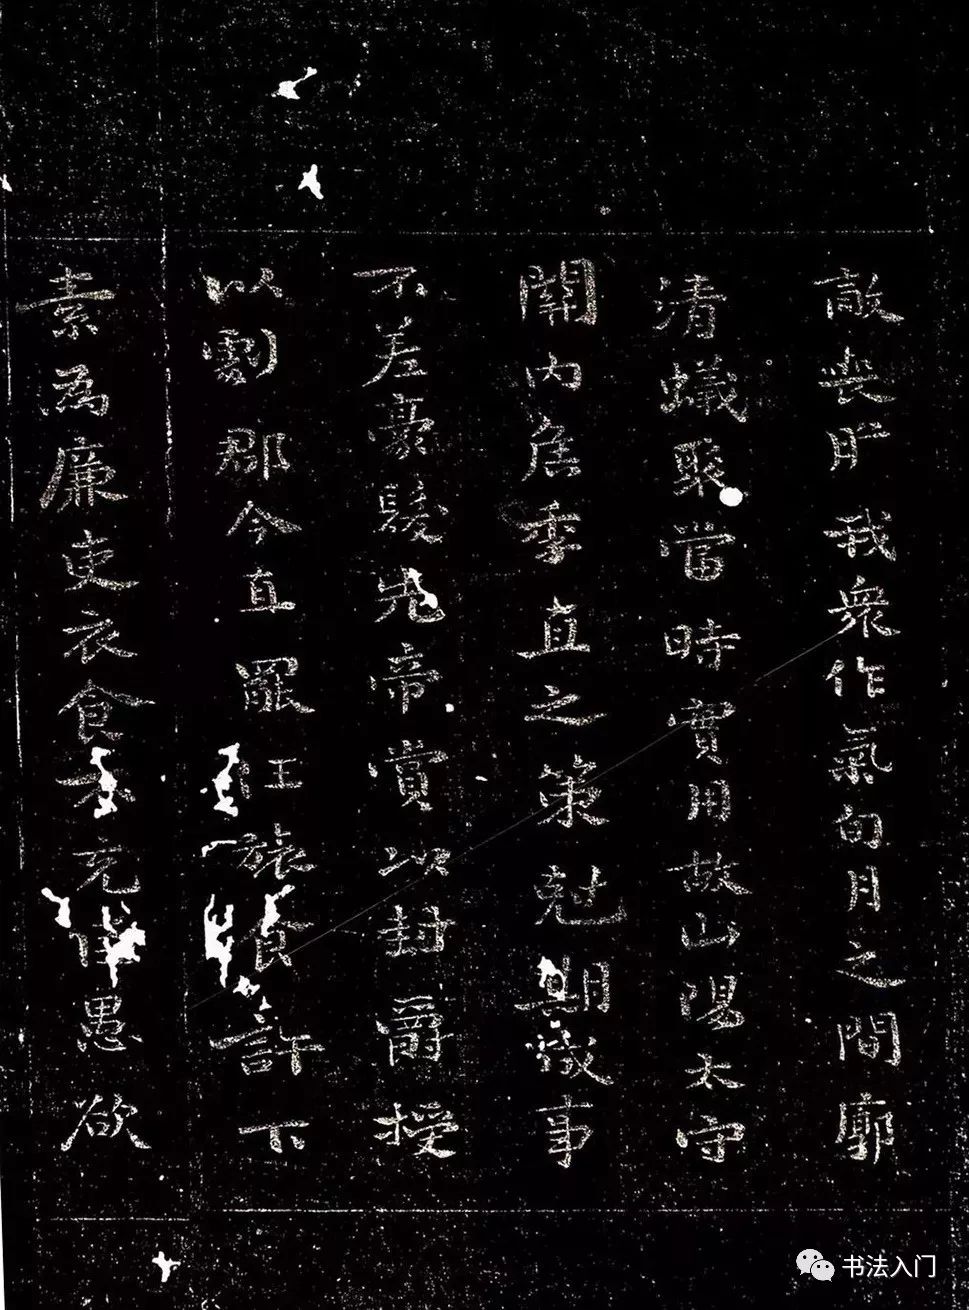 敵喪膽我衆作氣旬月之間廓
清蟻聚當時實用故山陽太守
關内侯季直之策尅期成事
不差豪髮先帝賞以封爵授
以劇郡今直罷任旅食許下
素爲廉吏衣食不充愚欲
书法入门